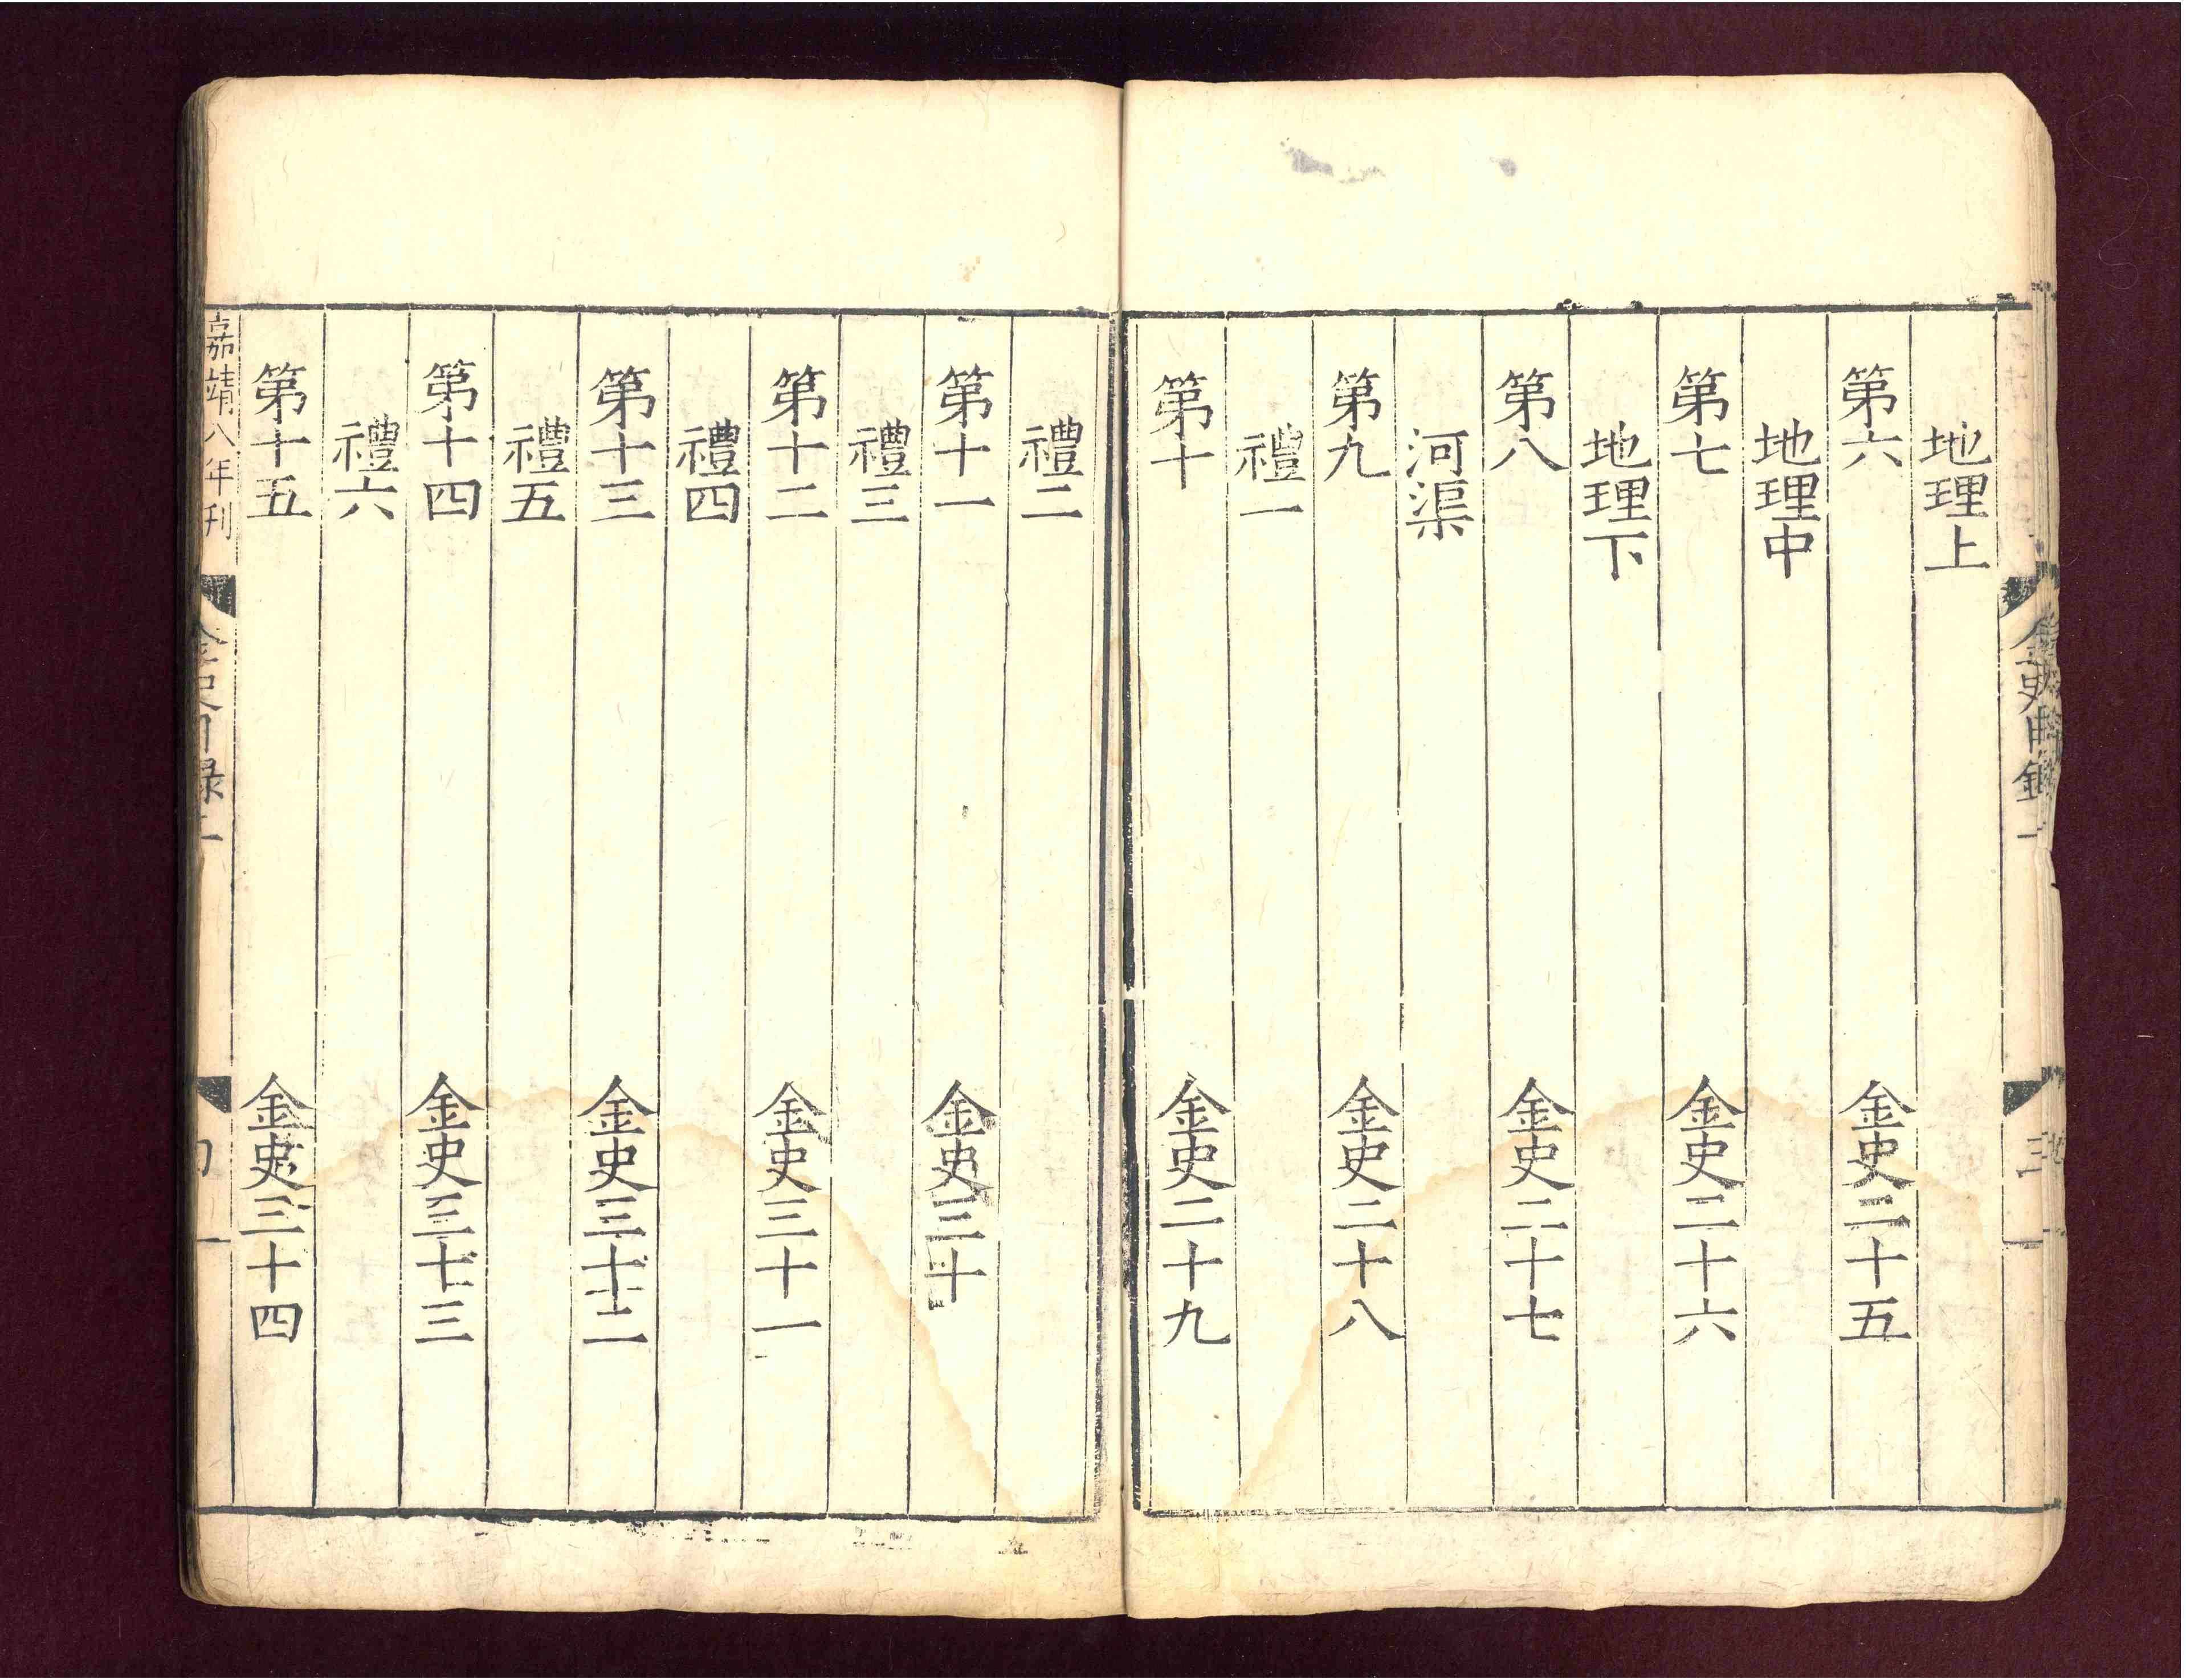 地理上
第六 金史二十五
地理中
第七 金史二十六
地理下
第八 金史二十七
河渠
第九 金史二十八
禮一
第十 金史二十九
禮二
第十一 金史三十
禮三
第十二 金史三十一
禮四
第十三 金史三十二
禮五
第十四 金史三十三
禮六
第十五 金史三十四
嘉靖八年刊